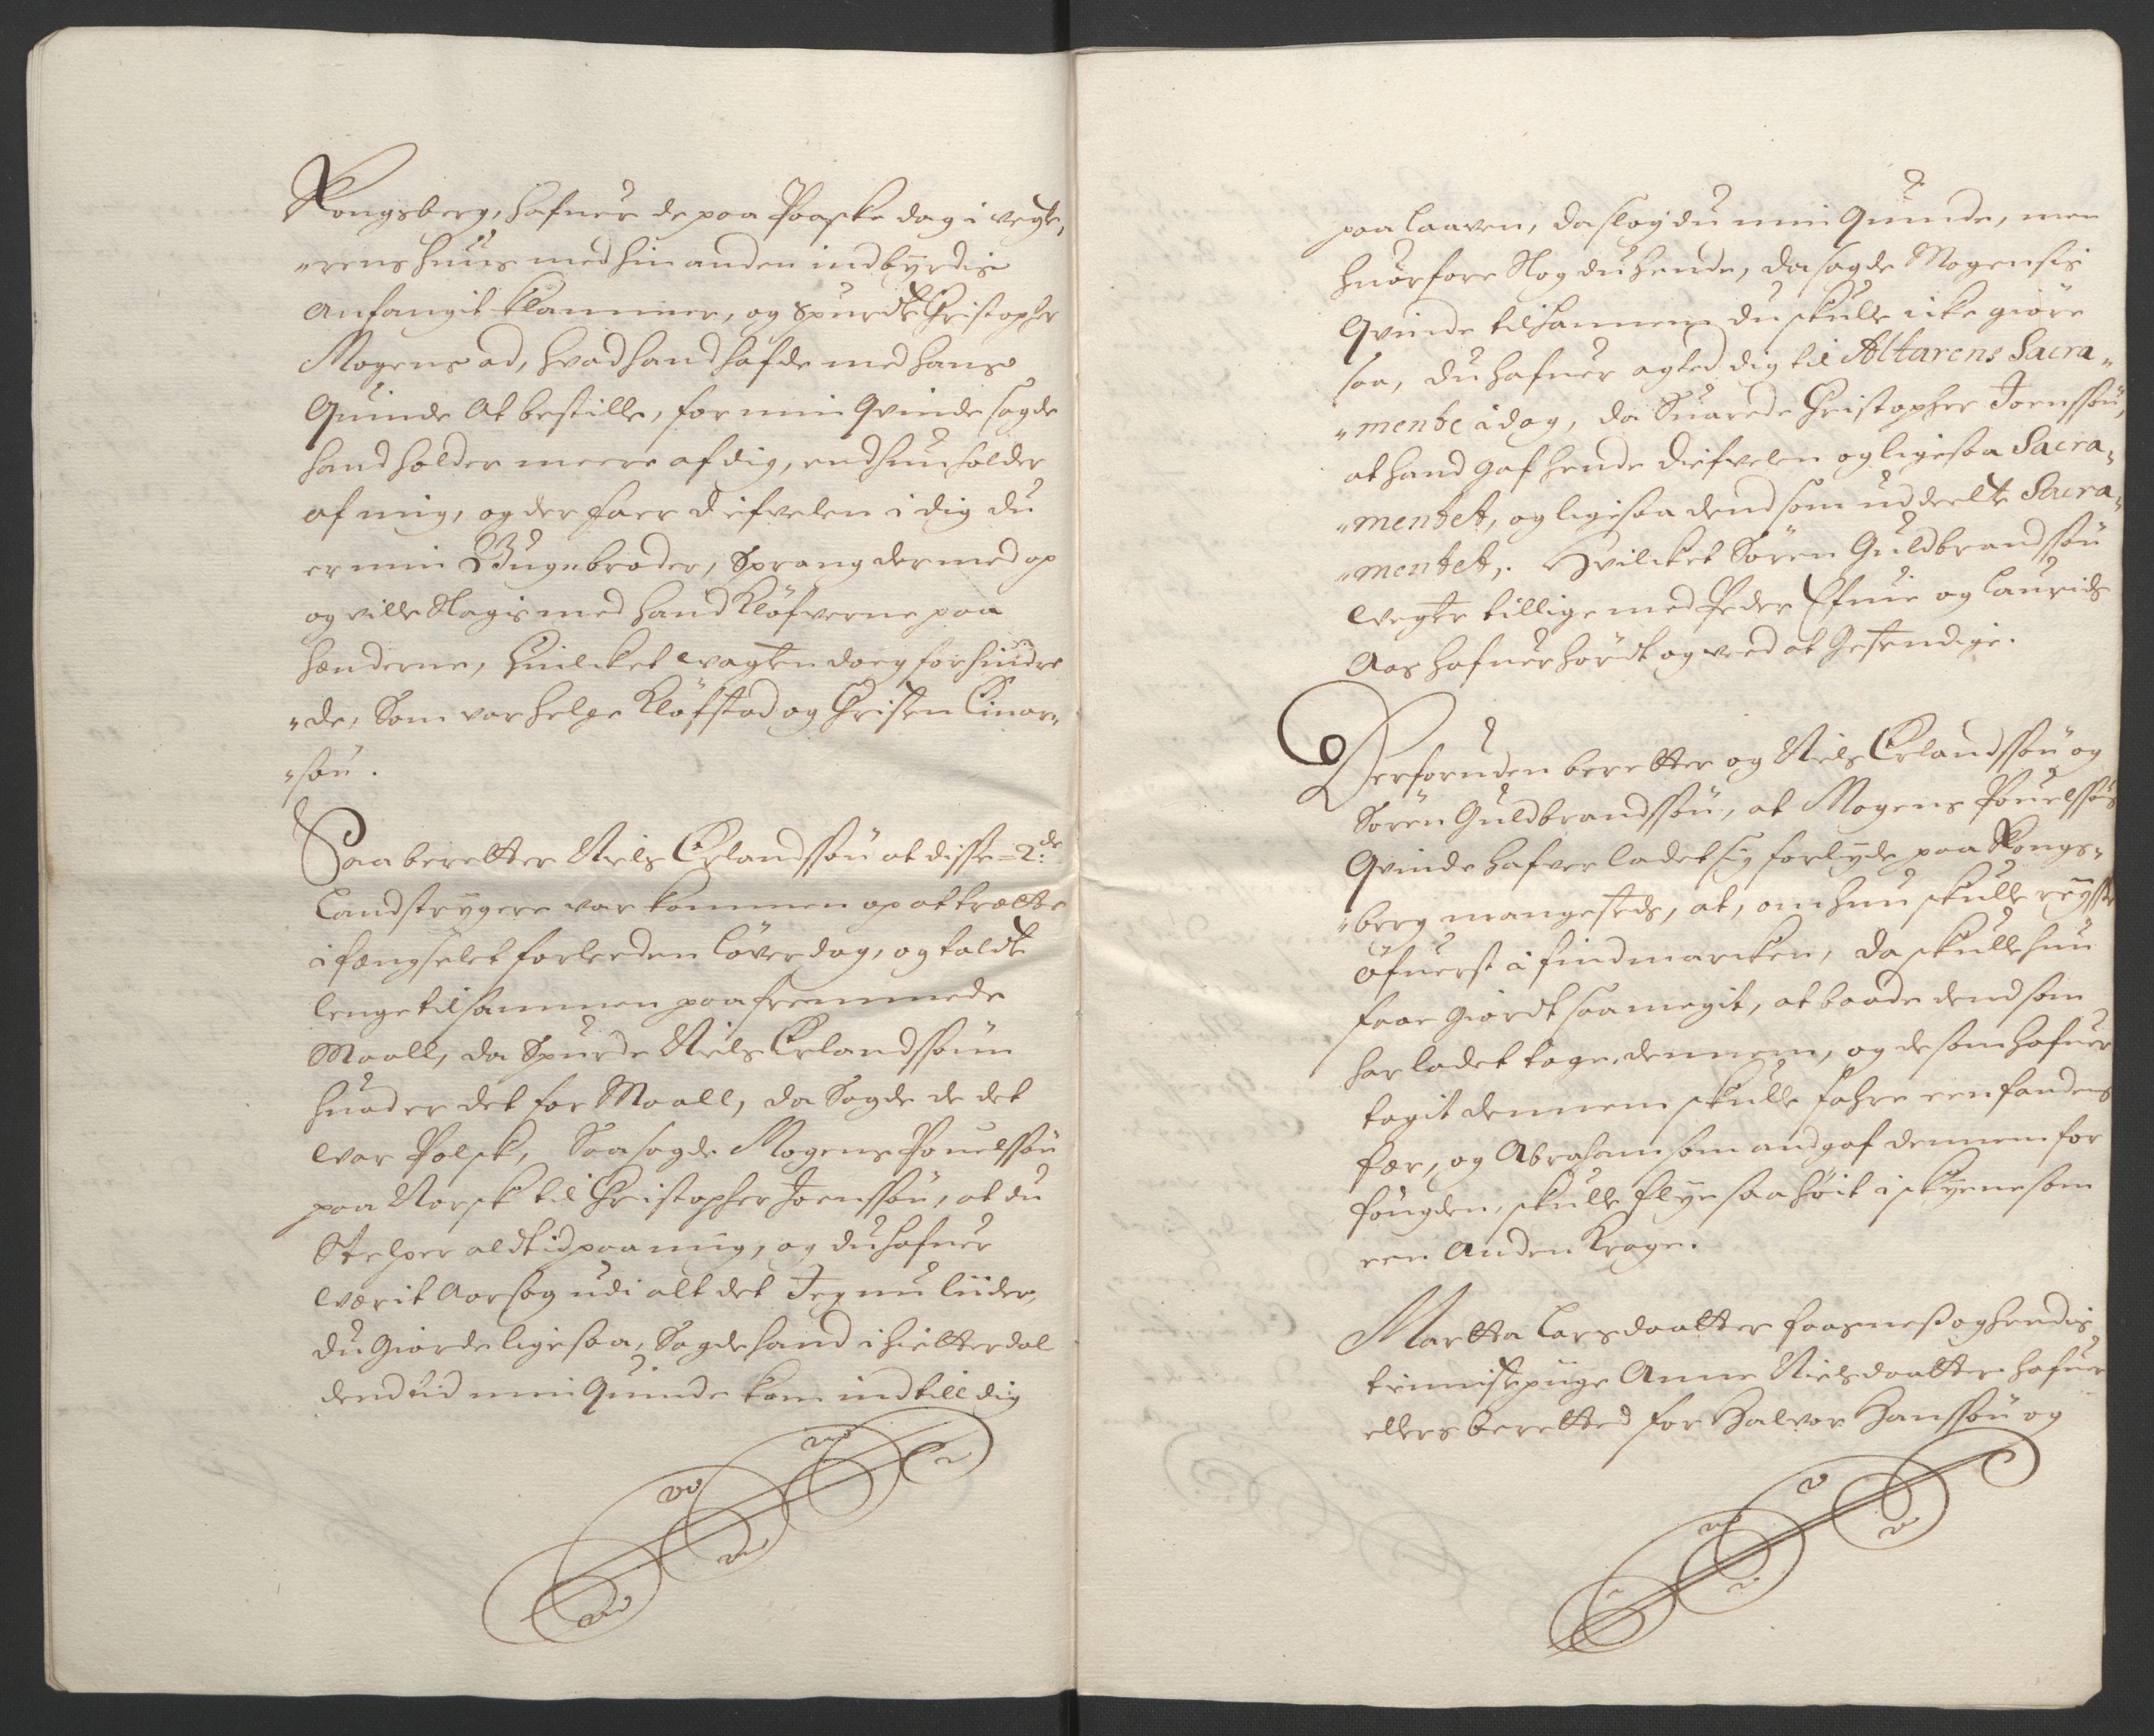 Kongsberg, hafuer de paa Paaske dag i wegte,
"rens huus med hinanden indbyrdis
anfangit klammer, og spurdte Christopher
Mogens ad, hvad hand hafde med hans
Quinde at bestille, for min Qvinde sagde
hand holder meere af dig, end hun holder
af mig, og der faer diefvelen i dig du
er min Bugebroder, Sprang dermed op
og wille Slagis med hand Kløfverne paa
hænderne, huilcket wagten doeg forhindre
"de, Som var Helge Kløfstad og Christen Einar"
"søn.
Saa beretter Niels Erlandssøn at disse=2de
Landstrygere var kommen op at trætte
i fængselet forleeden Løverdag, og taldte
lenge tilsammen paa fremmede
Maall, da Spurde Niels Erlandssøn
huad er det for Maall, da Sagde de det
war Polsk, Saa sagde Mogens Pouelssøn
paa Norsk til Christopher Joenssøn, at du
Skelper aldtid paa mig, og du hafuer
wærit Aarsag udi alt det Jeg nu liider,
du giorde ligesaa, Sagde hand i Hietterdal
dend tid min Quinde kom ind till dig
paa laaven, da slog du min Quinde, men
huorfore Slog du hende, da sagde Mogensis
Qvinde til hannem du skulle icke giøre
saa, du hafuer agted dig til Altarens Sacra"
"mente i dag, da Suarede Christopher Joenssøn,
at hand gaf hende diefvelen og ligesaa Sacra"
"mentet, og ligesaa dend som uddeelte Sacra"
"mentet,. Hvilcket Sören Guldbrandssøn
wegter tillige med Peder Efuie og Laurids
Aas hafuer hørdt og ved at Gestendige.
Derforuden beretter og Niels Erlandssøn og
Sören Guldbrandssøn, at Mogens Pouelssøns
Qvinde hafver ladet sig forlyde paa Kongs"
"berg mangesteds, at, om hun skulle reysse
öfuerst i findmarcken, da skulle hun
faae giordt saa megit, at baade dend som
har ladet tage dennem, og de som hafuer
tagit dennem skulle fahre een fandens
fær, og Abraham som andgaf dennem for
fougden, skulle flye saa høit i skyene som
een anden Krage.
Martta Larsdaatter faasness og hendis
tienniste pige Anne Nielsdaatter hafuer
ellers beretted for Halvor Hanssøn og